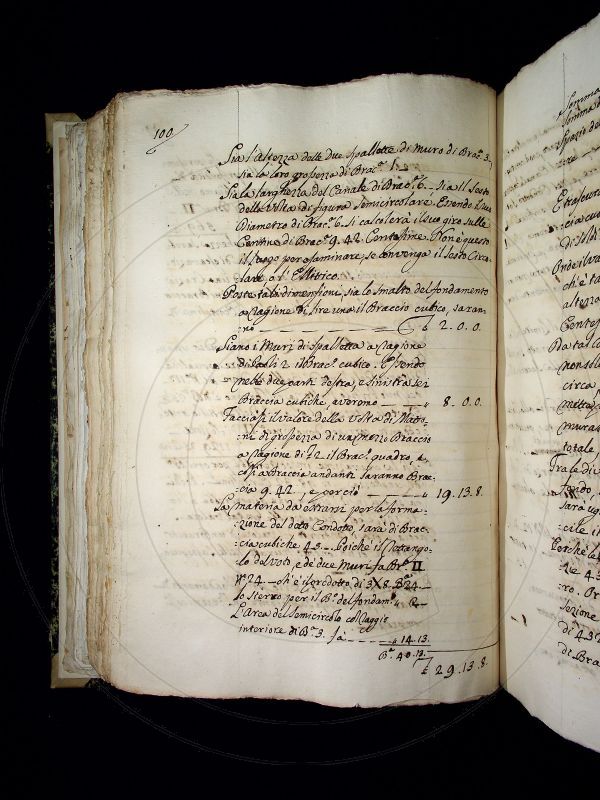 100
Sia l'Altezza delle due spallette di Muro di Brac.ª 3.
sia la loro grossezza di Brac.ª 1.
Sia la larghezza del Canale di Brac.ª 6. – sia il Sesto
della Volta di figura Semicircolare. Essendo il suo
Diametro di Brac.ª 6. si calcolerà il suo giro sulle
Centine di Brac.ª 9.42. Centesime. Non è questo
il luogo per esaminare, se convenga il Sesto Circo-
lare, o l'Ellittico.
Poste tali dimensioni, sia lo smalto del fondamento
a ragione di lire una il Braccio cubico, saran-
:no £ 2.0.0.
Siano i Muri di spalletta a ragione
di Paoli 2 il Brac.º cubico. Essendo
nelle due parti destra, e sinistra sei
Braccia cubiche, averemo „ 8.0.0.
Facciasi il valore della volta di Matto-
:ni di grossezza di un mezzo Braccio
a ragione di £ 2 il Brac.º quadro, e
così a braccia andanti saranno Brac-
cia 9.42, e perciò „ 19.13.8.
La materia da estrarsi per la forma-
:zione del detto Condotto, sarà di Brac-
:cia cubiche 43. – Poichè il Rettango-
lo del voto, e de due Muri fa Br.ª
24 – ch'è il prodotto di 3X8. B.ª 24. –
lo sterro per il B.º del fondam.º
L'Area del Semicircolo col Raggio
interiore di B.ª 3. fà „ 14.13.
B.ª 40.13.
£ 29.13.8.